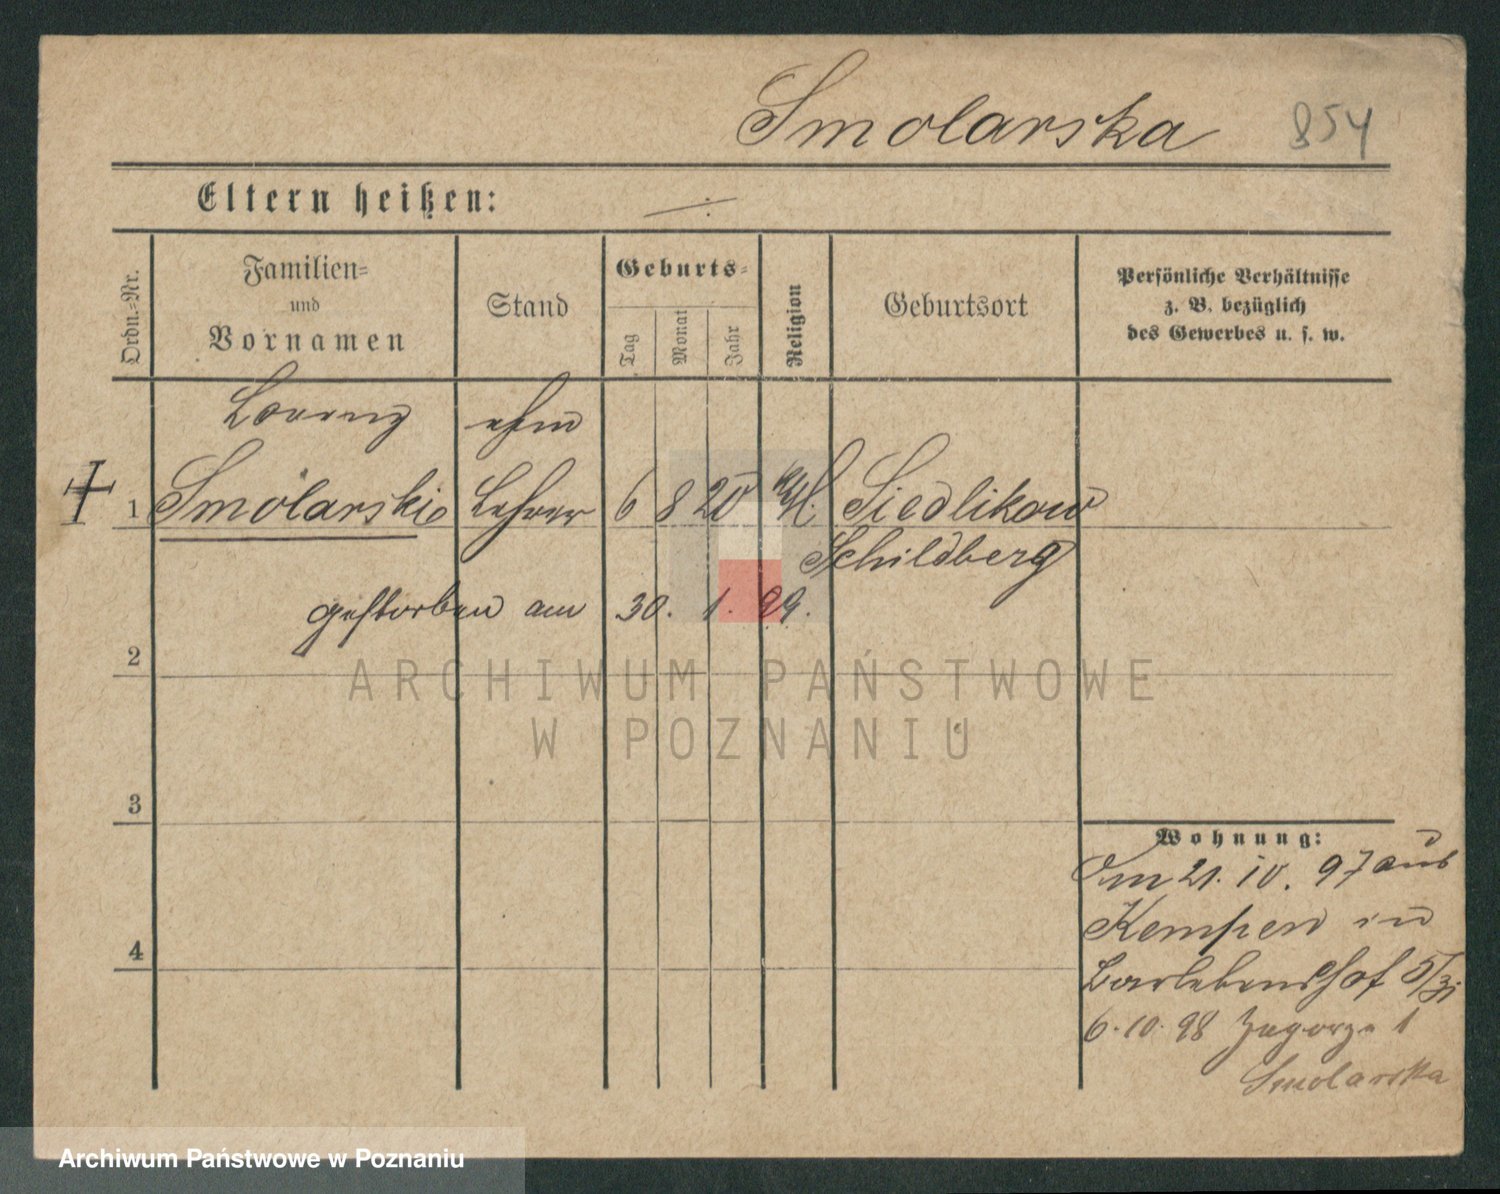 Smolarska 854
Eltern heißen:
Ordn.-Nr.
Familien-
und
Vornamen
Stand
Geburts-
Tag
Monat
Jahr
Religion
Geburtsort
Persönliche Verhältnisse
z. B. bezüglich
des Gewerbes u. s. w.
Lorenz ehm
1 Smolarski Lehrer 6 8 20 kth. Siedlikow
Schildberg
gestorben am 30. 1. 99.
2
3
4
Wohnung:
Am 21. 10. 97 aus
Kempen in
Barlebenshof 5/3
6. 10. 98 Zagorze 1
Smolarska
ARCHIWUM PAŃSTWOWE
W POZNANIU
Archiwum Państwowe w Poznaniu